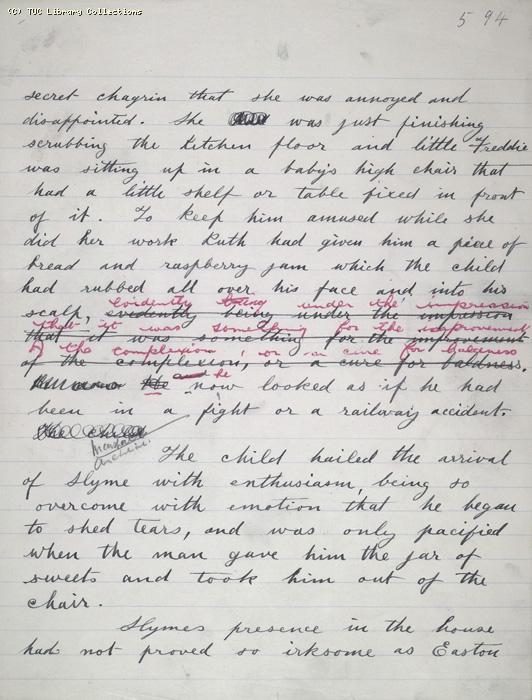 (C) TUC Library Collections
594
secret chagrin that she was annoyed and
disappointed. She was just finishing
scrubbing the kitchen floor and little Freddie
was sitting up in a baby's high chair that
had a little shelf or table fixed in front
of it. To keep him amused while she
did her work Ruth had given him a piece of
bread and raspberry jam which the child
had rubbed all over his face and into his
evidently being under the impression
scalp, evidently being under the impression
that it was something for the improvement
that it was something for the improvement
of the complexion, or a cure for baldness
of the complexion, or a cure for baldness.
and he
He now looked as if he had
been in a fight or a railway accident.
The child
The child hailed the arrival
of Slyme with enthusiasm, being so
overcome with emotion that he began
to shed tears, and was only pacified
when the man gave him the jar of
sweets and took him out of the
chair.
Slymes presence in the house
had not proved so irksome as Easton